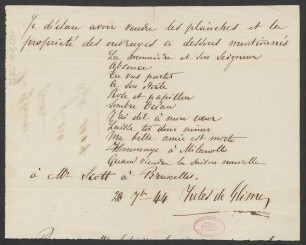 Je déclare avoir vendu les planches et la
propriété des ouvrages ci dessous mentionnés
La meunière et son Seigneur
Absence
Tu vas partir
A son étoile
Rose et papillon
Sombre Océan
J'ai dit à mon cœur
Laisse toi donc aimer
Ma belle amie est morte
Hommage à
Quand viendra la saison nouvelle
à Mr Scott à Bruxelles.
28 7bre 44 Jules de Glimes